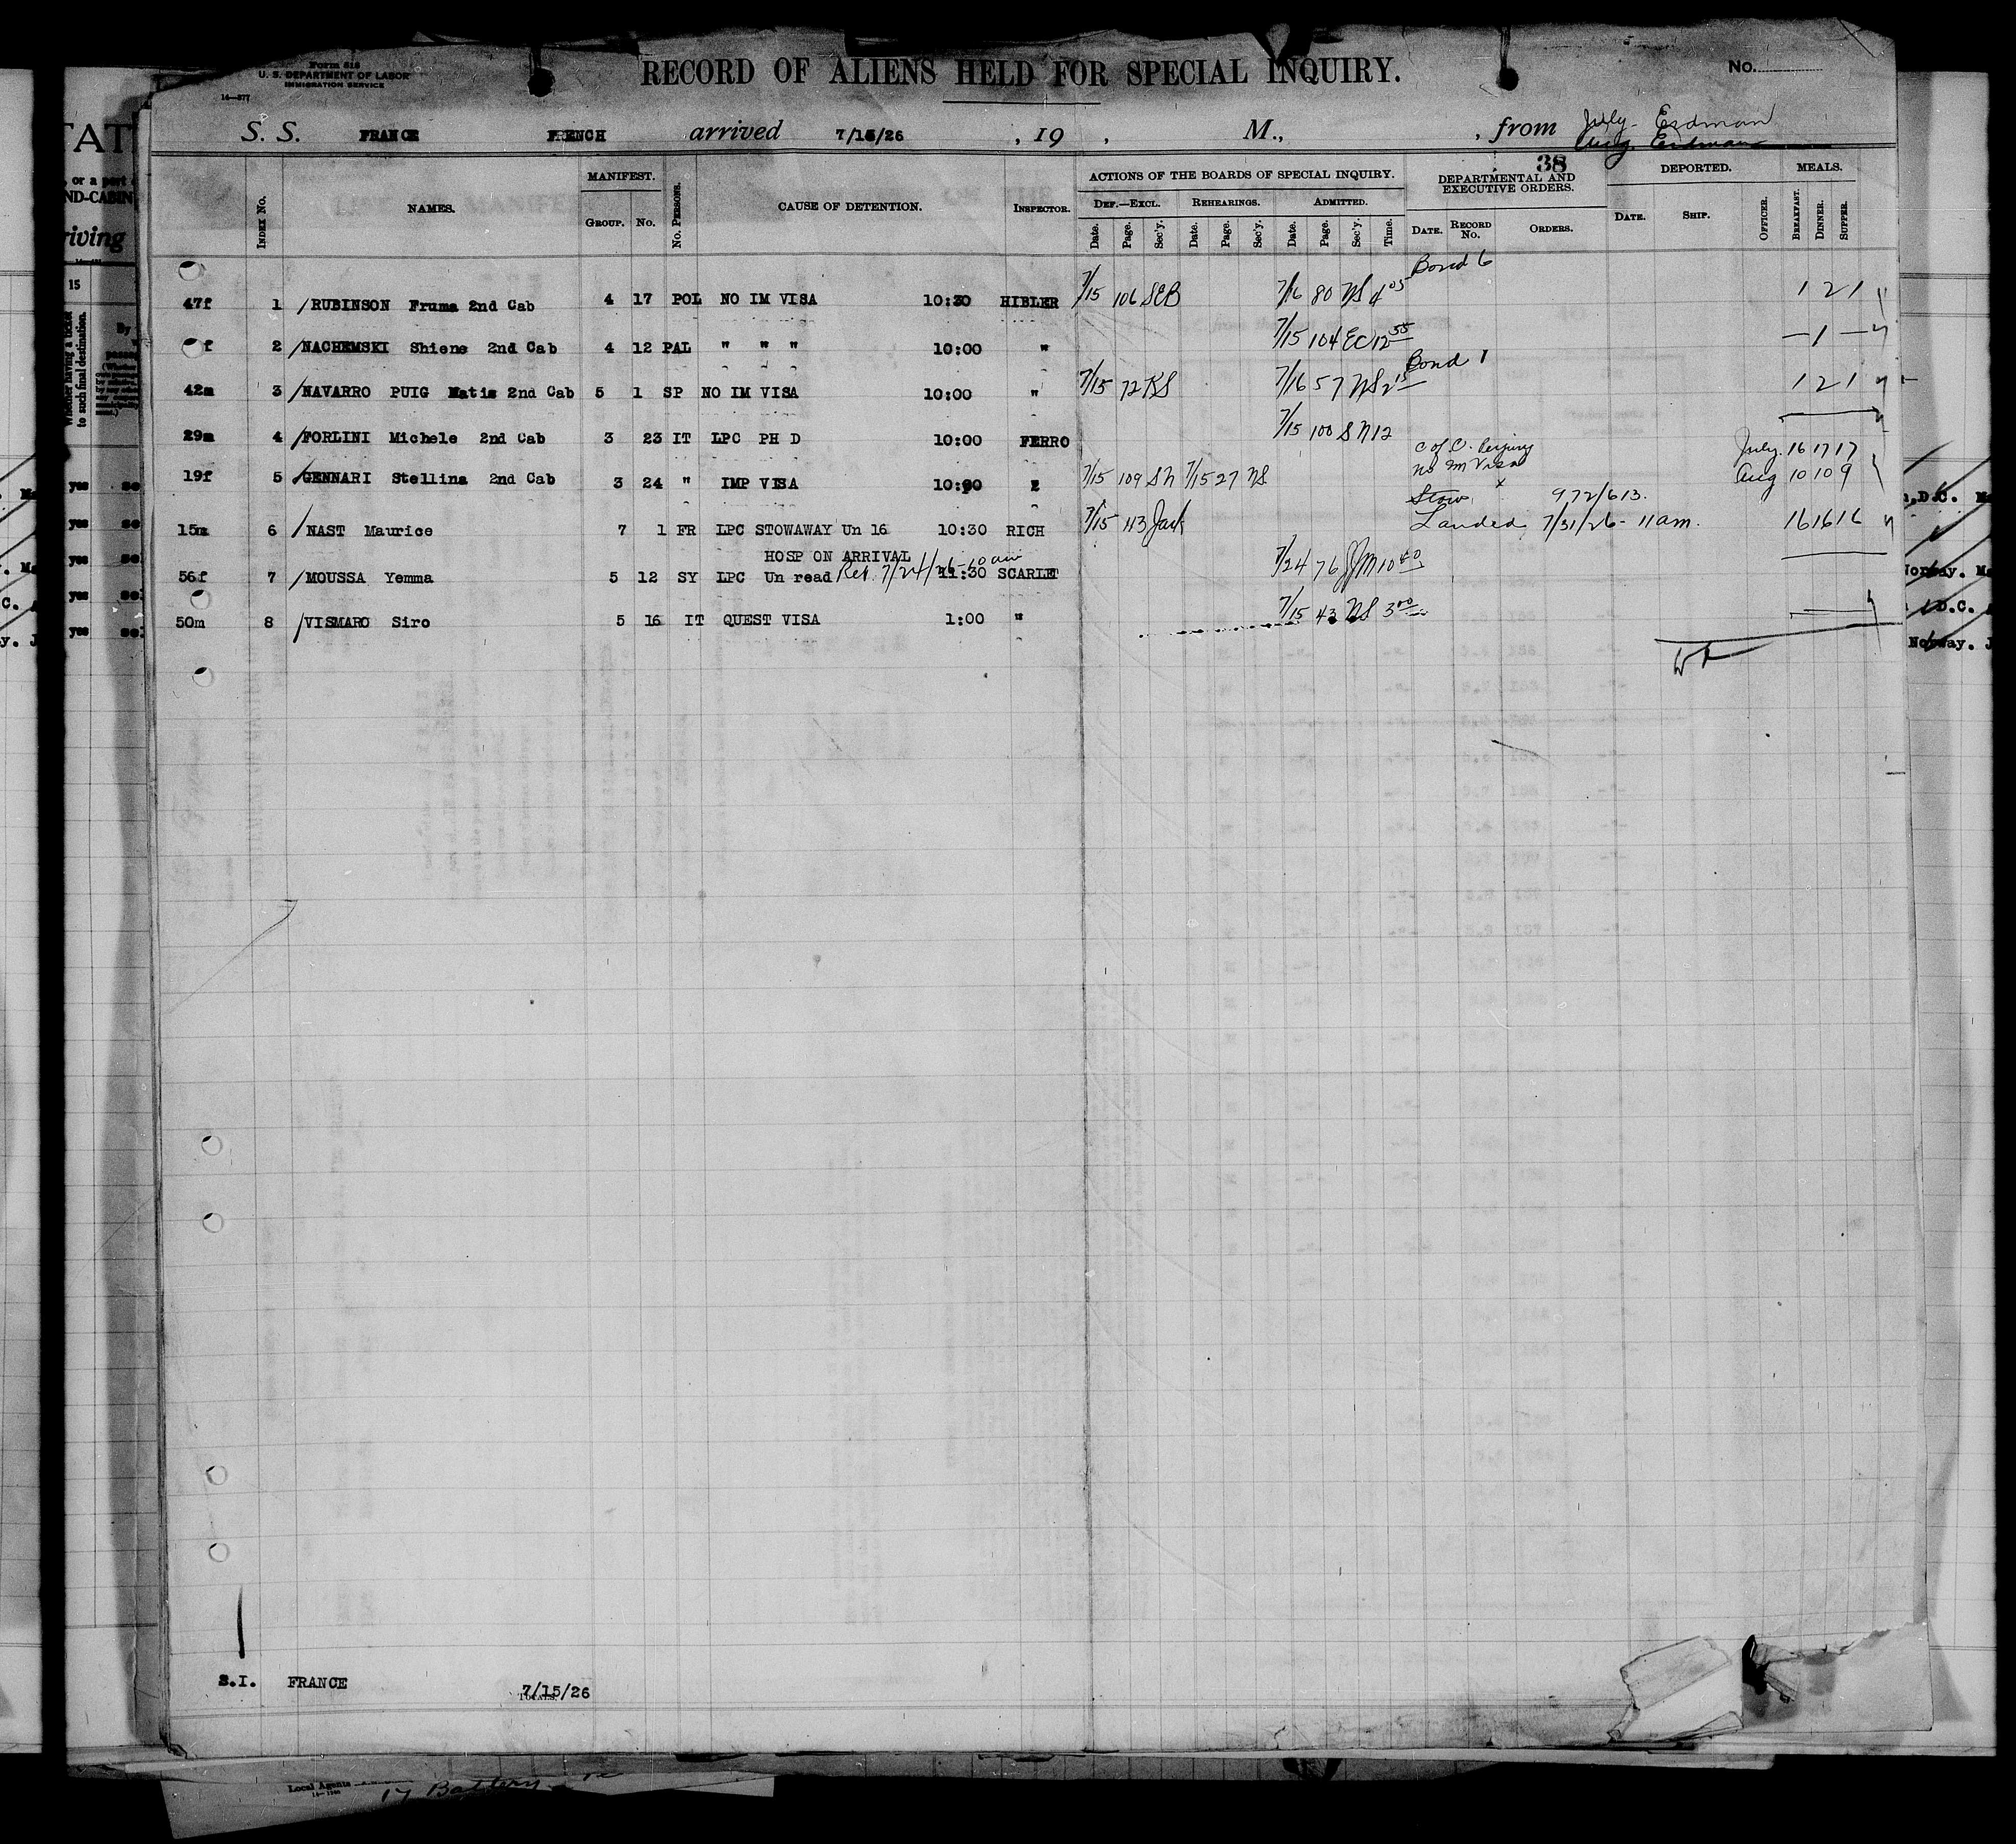 Form 818
U. S. DEPARTMENT OF LABOR
IMMIGRATION SERVICE
14—877
RECORD OF ALIENS HELD FOR SPECIAL INQUIRY.
No.
S. S. FRANCE FRENCH arrived 7/15/26 , 19 , M., , from July - Erdman
Aug. Erdman
38
INDEX No.
NAMES.
MANIFEST.
GROUP. No.
No. PERSONS.
CAUSE OF DETENTION.
INSPECTOR.
ACTIONS OF THE BOARDS OF SPECIAL INQUIRY.
DEF.—EXCL. REHEARINGS. ADMITTED.
Date. Page. Sec'y. Date. Page. Sec'y. Date. Page. Sec'y. Time.
DEPARTMENTAL AND EXECUTIVE ORDERS.
DATE. RECORD No. ORDERS.
DEPORTED.
DATE. SHIP. OFFICER.
MEALS.
BREAKFAST. DINNER. SUPPER.
Bond 6
47f 1 /RUBINSON Fruma 2nd Cab 4 17 POL NO IM VISA 10:30 HIBLER 7/15 106 SEB 7/16 80 NS 4 05 1 2 1
f 2 /NACHEMSKI Shiene 2nd Cab 4 12 PAL " " " 10:00 " 7/15 104 EC 12 55 — 1 —
Bond 1
42m 3 /NAVARRO PUIG Matis 2nd Cab 5 1 SP NO IM VISA 10:00 " 7/15 72 KS 7/16 57 NS 2 15 1 2 1
29m 4 /FORLINI Michele 2nd Cab 3 23 IT LPC PH D 10:00 FERRO 7/15 100 SN 12
C of C. Perjury July. 16 17 17
19f 5 /GENNARI Stellina 2nd Cab 3 24 " IMP VISA 10:00 " 7/15 109 SN 7/15 27 NS No IM Visa Aug 10 10 9
Stow. 972/613.
15m 6 /NAST Maurice 7 1 FR LPC STOWAWAY Un 16 10:30 RICH 7/15 113 Jack Landed 7/31/26 - 11am. 16 16 16
HOSP ON ARRIVAL
56f 7 /MOUSSA Yemma 5 12 SY LPC Un read Rel. 7/24/26-10am 11:30 SCARLET 7/24 76 JJM 10 40
50m 8 /VISMARO Siro 5 16 IT QUEST VISA 1:00 " 7/15 43 NS 3 00
S.I. FRANCE 7/15/26
TOTALS
Local Agents
17 Battery
TAT
, or a part
ND-CABIN
riving
15
Whether having a ticket to such final destination.
By
yes
yes
yes
yes
yes
D.C.
Norway.
D.C.
Norway. J